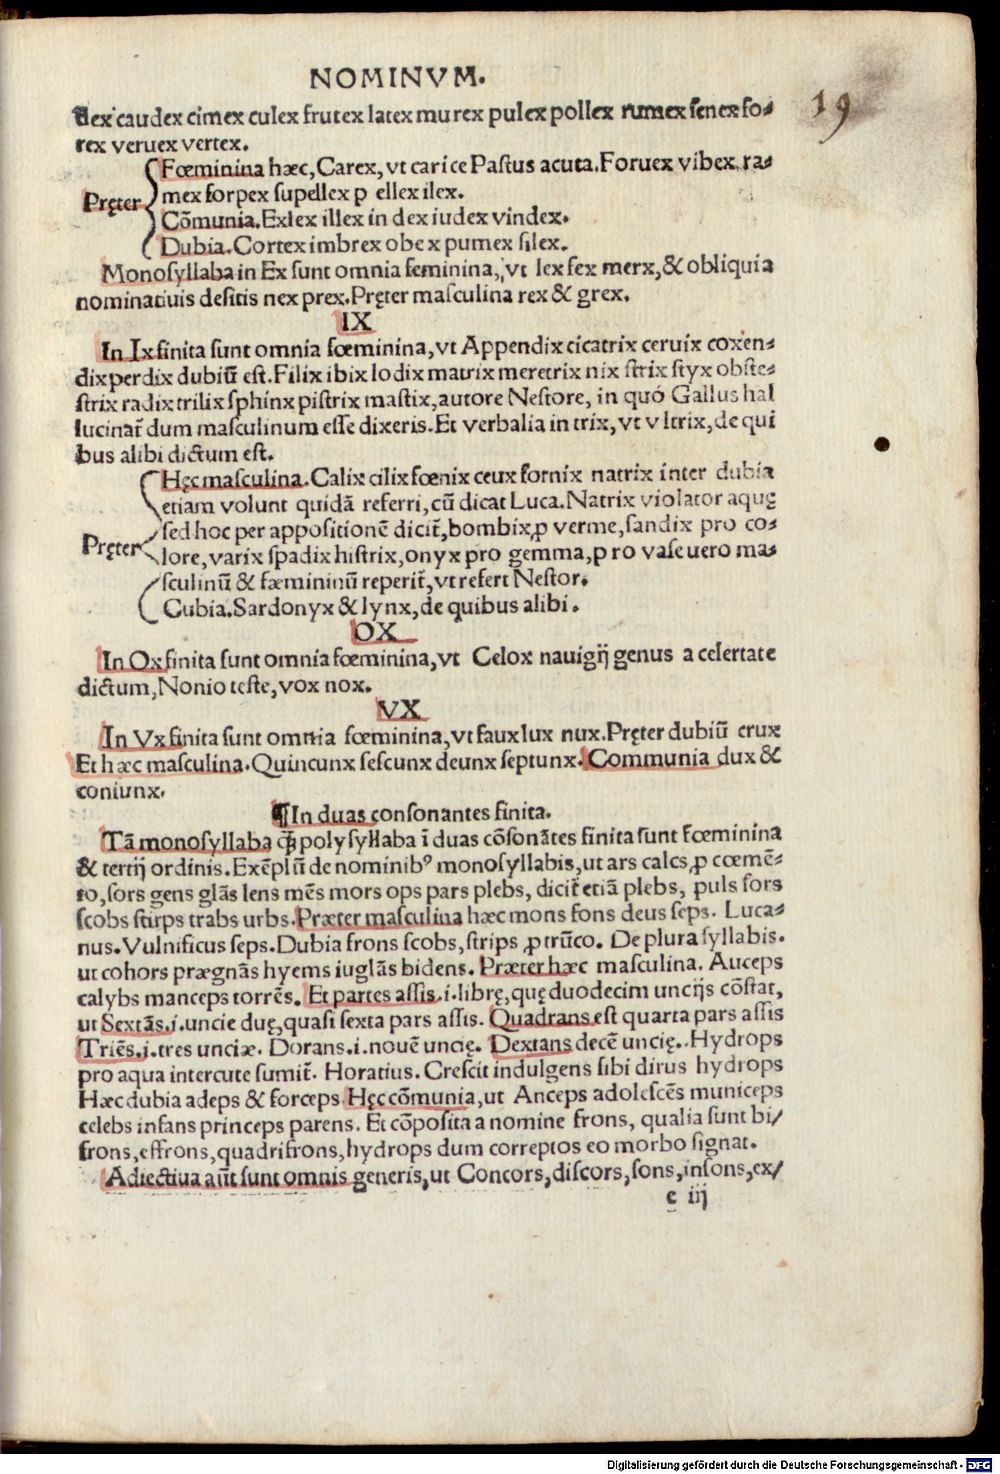 NOMINVM.
19
dex caudex cimex culex frutex latex murex pulex pollex rumex senex so-
rex veruex vertex.
Fœminina hæc, Carex, vt carice Pastus acuta. Foruex vibex ra-
Pręter mex forpex supellex p ellex ilex.
Cōmunia. Exlex illex in dex iudex vindex.
Dubia. Cortex imbrex obex pumex silex.
Monosyllaba in Ex sunt omnia feminina, vt lex fex merx, & obliquia
nominatiuis desitis nex prex. Pręter masculina rex & grex.
IX
In Ix finita sunt omnia fœminina, vt Appendix cicatrix ceruix coxen-
dix perdix dubiū est. Filix ibix lodix matrix meretrix nix strix styx obste-
strix radix trilix sphinx pistrix mastix, autore Nestore, in quo Gallus hal
lucinat̄ dum masculinum esse dixeris. Et verbalia in trix, vt vltrix, de qui
bus alibi dictum est.
Hęc masculina. Calix cilix fœnix ceux fornix natrix inter dubia
etiam volunt quidā referri, cū dicat Luca. Natrix violator aquę
sed hoc per appositionē dicit̄, bombix, ꝓ verme, sandix pro co-
Pręter lore, varix spadix histrix, onyx pro gemma, p ro vase uero ma-
sculinū & fæmininū reperit̄, vt refert Nestor.
Cubia. Sardonyx & lynx, de quibus alibi.
OX
In Ox finita sunt omnia fœminina, vt Celox nauigij genus a celertate
dictum, Nonio teste, vox nox.
VX
In Vx finita sunt omnia fœminina, vt faux lux nux. Pręter dubiū crux
Et hæc masculina. Quincunx sescunx deunx septunx. Communia dux &
coniunx.
¶ In duas consonantes finita.
Tā monosyllaba ꝙ̄ polysyllaba ī duas cōsonātes finita sunt fœminina
& tertij ordinis. Exēplū de nominibꝰ monosyllabis, ut ars calcs, ꝓ cœmē-
to, sors gens glās lens mēs mors ops pars plebs, dicit̄ etiā plebs, puls fors
scobs stirps trabs urbs. Præter masculina hæc mons fons deus seps. Luca-
nus. Vulnificus seps. Dubia frons scobs, strips ꝓ trūco. De plurasyllabis.
ut cohors prægnās hyems iuglās bidens. Præter hæc masculina. Auceps
calybs manceps torrēs. Et partes assis. i. librę, quę duodecim uncijs cōstat,
ut Sextās. i. uncie duę, quasi sexta pars assis. Quadrans est quarta pars assis
Triēs. i. tres unciæ. Dorans. i. nouē uncię. Dextans decē uncię. Hydrops
pro aqua intercute sumit̄. Horatius. Crescit indulgens sibi dirus hydrops
Hæc dubia adeps & forceps Hęc cōmunia, ut Anceps adolescēs municeps
celebs infans princeps parens. Et cōposita a nomine frons, qualia sunt bi/
frons, effrons, quadrifrons, hydrops dum correptos eo morbo signat.
Adiectiua aūt sunt omnis generis, ut Concors, discors, sons, insons, ex/
c iij
Digitalisierung gefördert durch die Deutsche Forschungsgemeinschaft - DFG